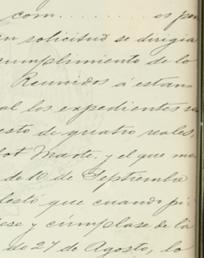 com......... es por
solicitud se dirigia
cumplimiento de lo
Reunidos á estam
al los expedientes
esto de quatro reales,
Marte, y el que ma
de 10 de Septiembre
que cuando pi
ese y cúmplase de la
de 27 de Agosto, lo